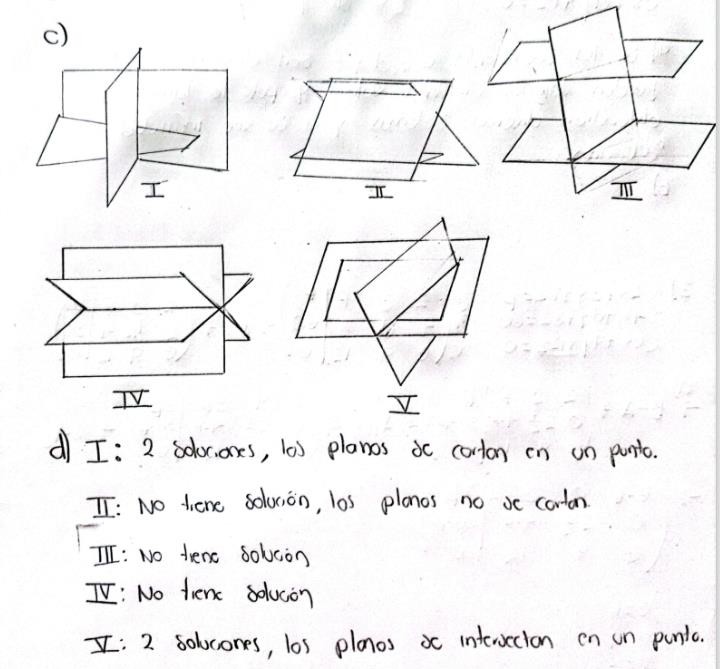 c)
I
II
III
IV
V
d) I: 2 soluciones, los planos se cortan en un punto.
II: No tiene solución, los planos no se cortan.
III: No tiene solución
IV: No tiene solución
V: 2 soluciones, los planos se intersectan en un punto.